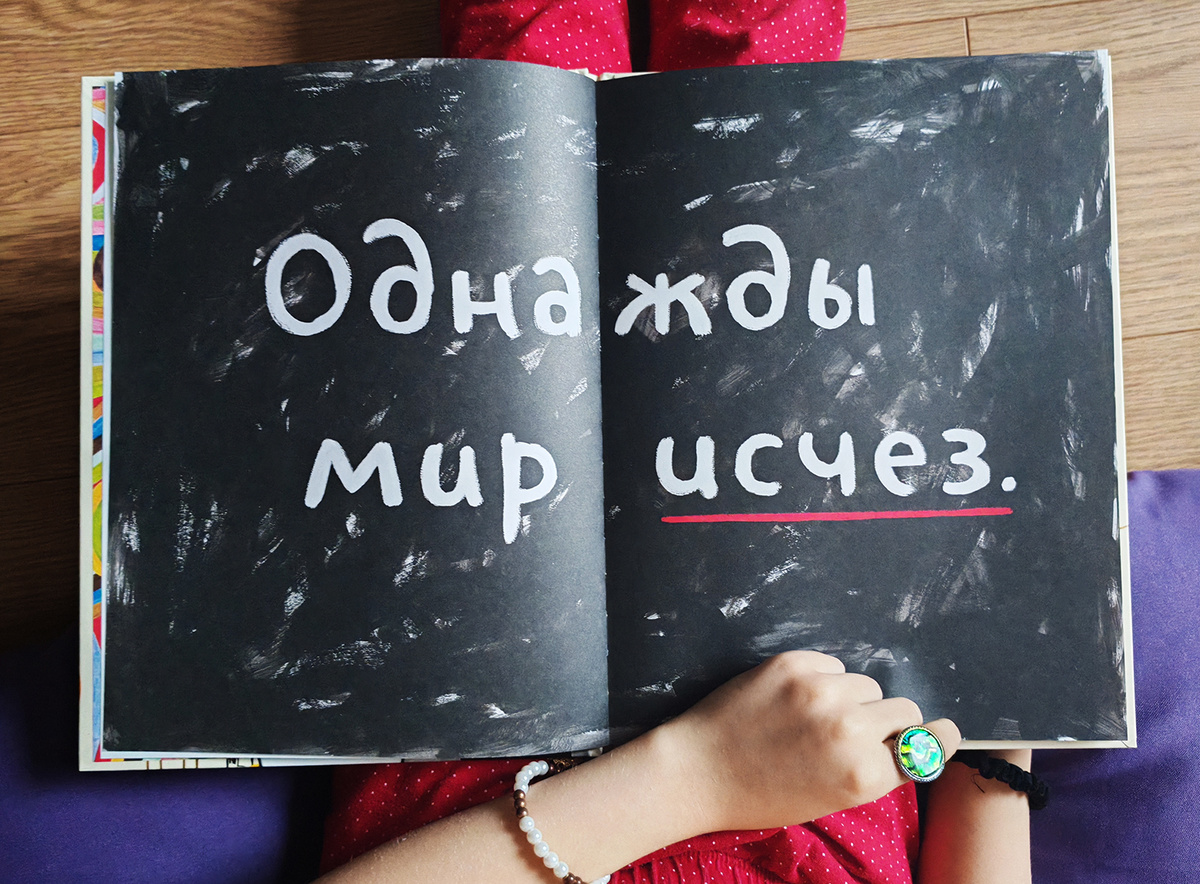 Однажды
мир исчез.